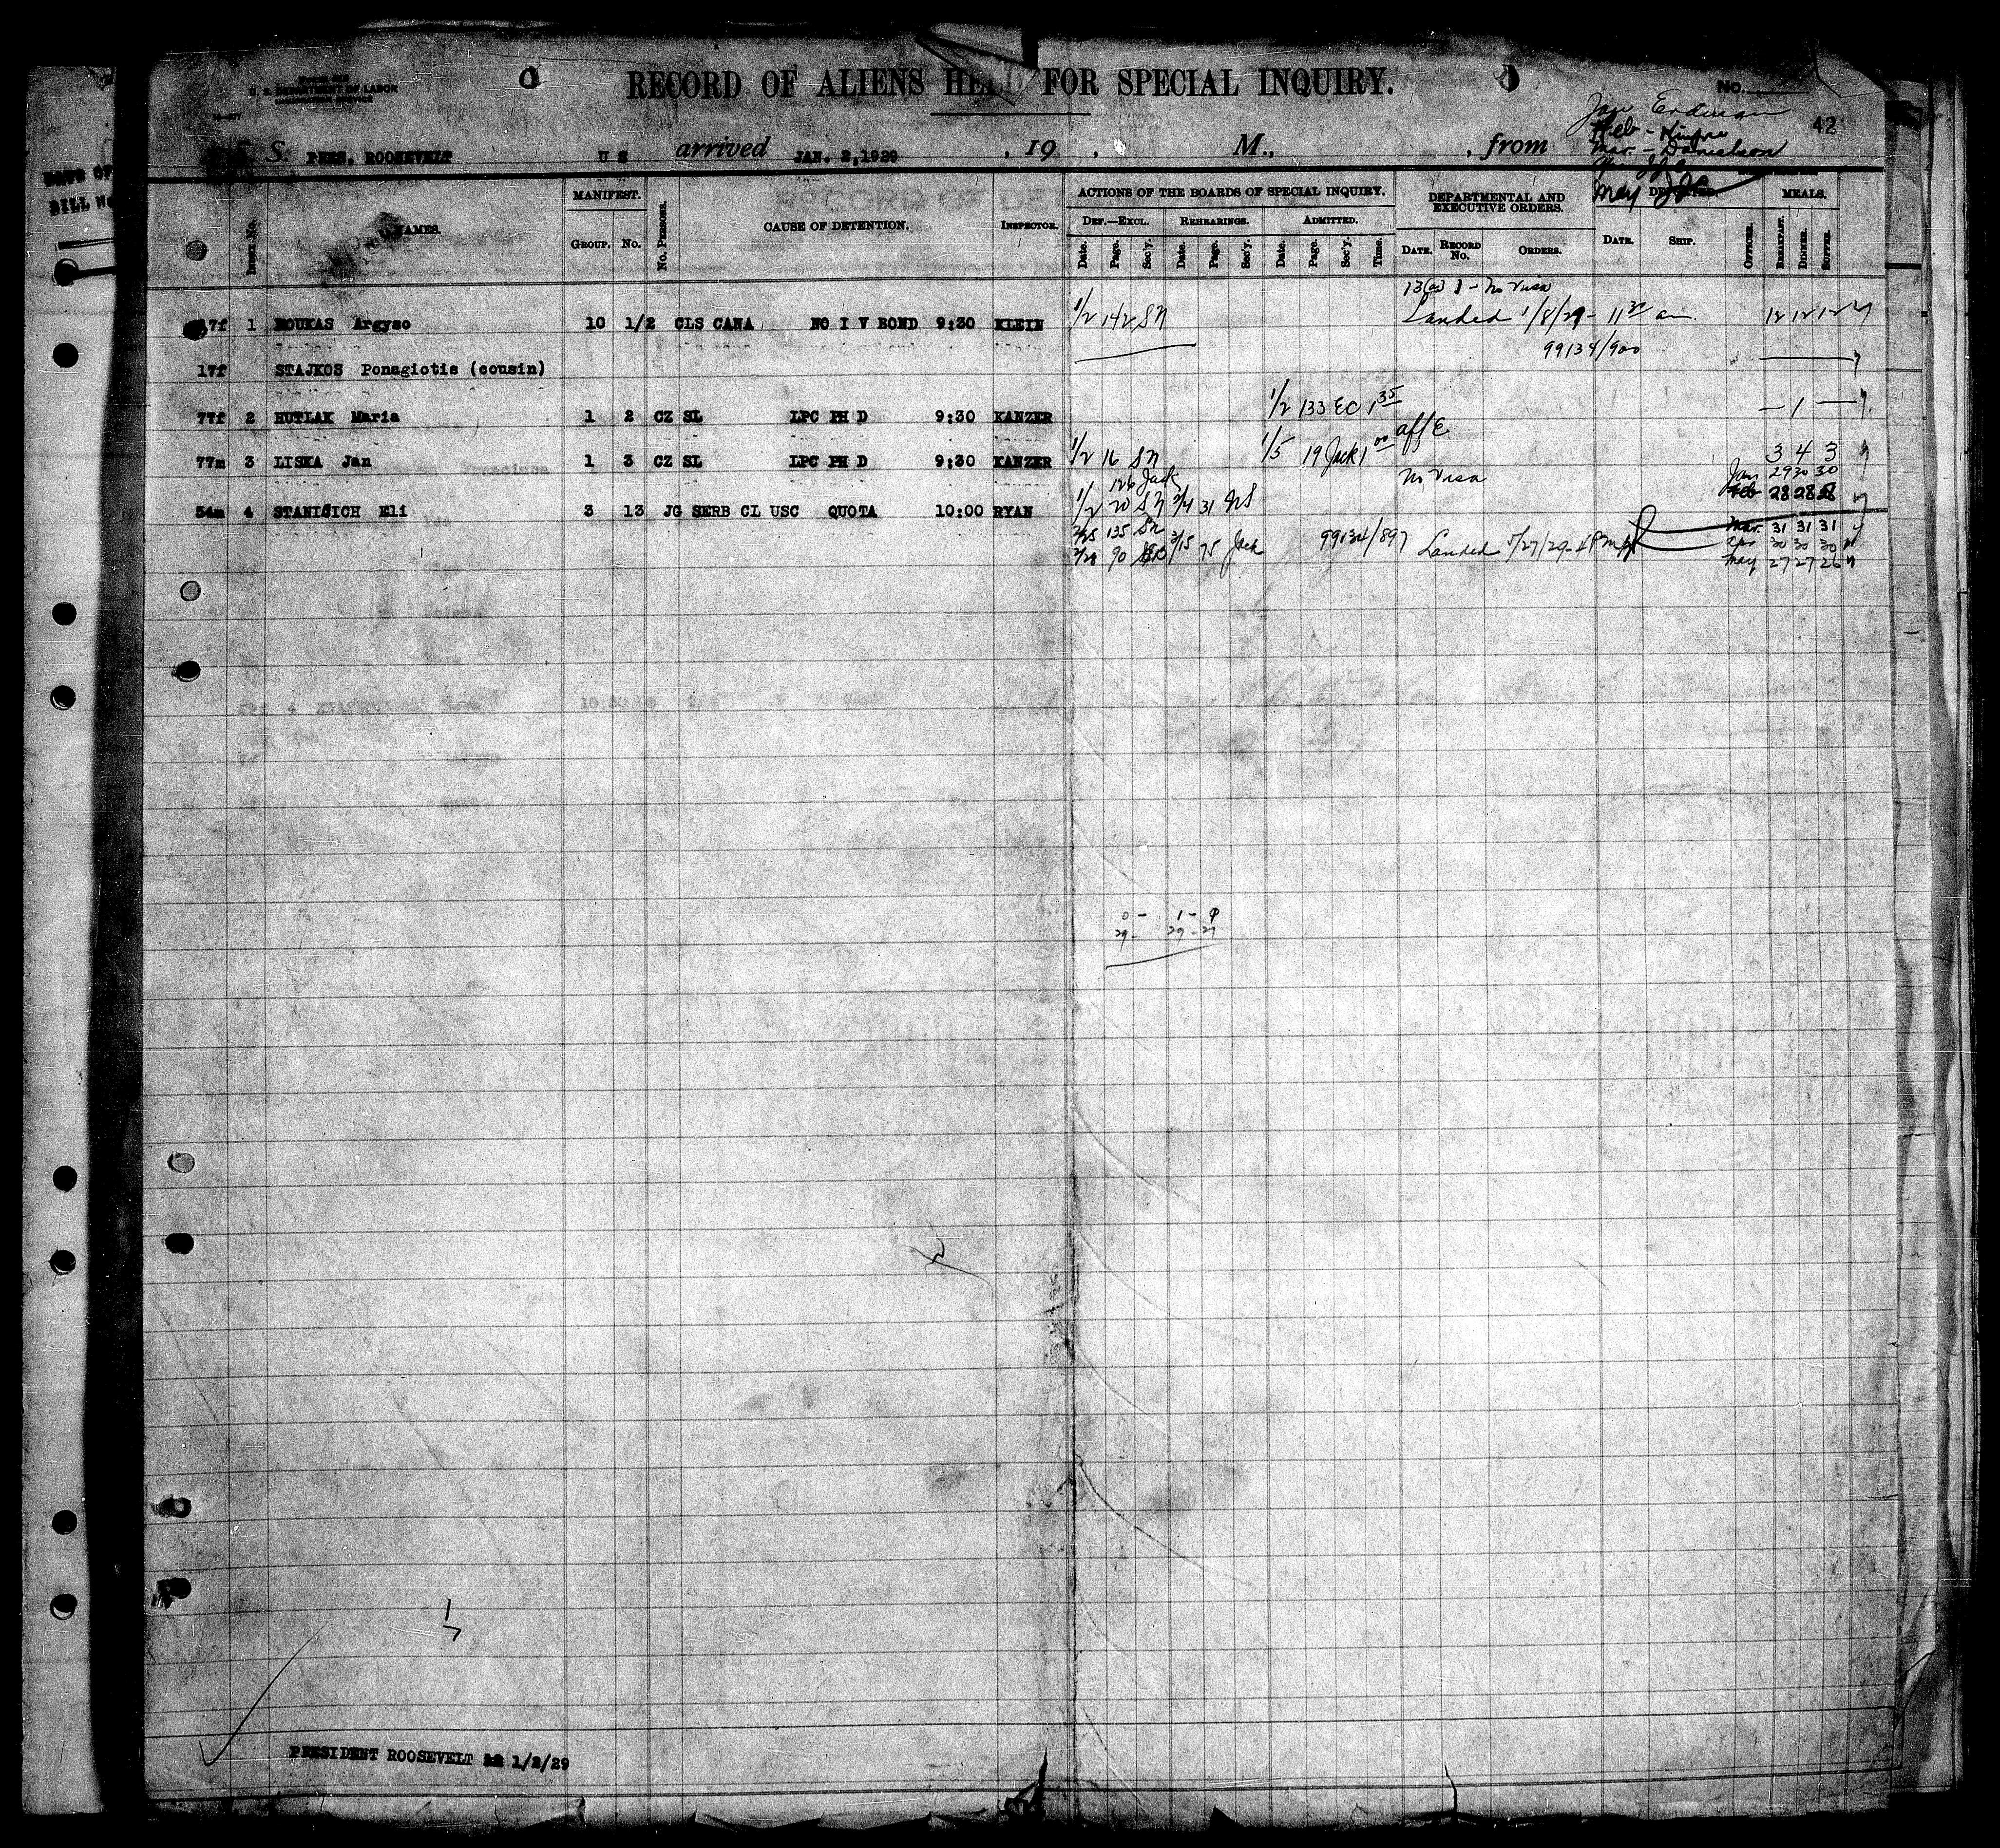 U. S. DEPARTMENT OF LABOR
IMMIGRATION SERVICE
RECORD OF ALIENS HELD FOR SPECIAL INQUIRY.
No.
42
Jan Erdman
Feb -
Mar - Danielson
May
S. PRES. ROOSEVELT arrived JAN. 2, 1929 , 19 , M., , from
BILL No
Index No. NAMES. MANIFEST. GROUP. No. No. Persons. CAUSE OF DETENTION. INSPECTOR.
ACTIONS OF THE BOARDS OF SPECIAL INQUIRY.
DEF.—EXCL. REHEARINGS. ADMITTED.
Date. Page. Sec'y. Date. Page. Sec'y. Date. Page. Sec'y. Time.
DEPARTMENTAL AND EXECUTIVE ORDERS.
DATE. RECORD No. ORDERS.
DATE. SHIP. OFFICER.
MEALS.
BREAKFAST. DINNER. SUPPER.
13(a) 1 - No Visa
17f 1 ROUKAS Argyso 10 1/2 CLS CANA NO I V BOND 9:30 KLEIN 1/2 142 SN Landed 1/8/29 - 11 30 am. 12 12 12
99134/900
17f STAJKOS Ponagiotis (cousin)
77f 2 HUTLAK Maria 1 2 CZ SL LPC PH D 9:30 KANZER 1/2 133 EC 1 35 — 1 —
aff E
77m 3 LISKA Jan 1 3 CZ SL LPC PH D 9:30 KANZER 1/2 16 SN 1/5 19 Jack 1 00 3 4 3
126 Jack No Visa Jan 29 30 30
Feb 28 28 28
54m 4 STANISICH Eli 3 13 JG SERB CL USC QUOTA 10:00 RYAN 1/2 20 SN 2/4 31 NS
2/25 135 SN 99134/897 Mar 31 31 31
2/28 90 3/15 75 Jack Landed 5/27/29 - 4 PM Apr 30 30 30
May 27 27 26
0 - 1 - 0
29 - 29 - 29
PRESIDENT ROOSEVELT 1/2/29